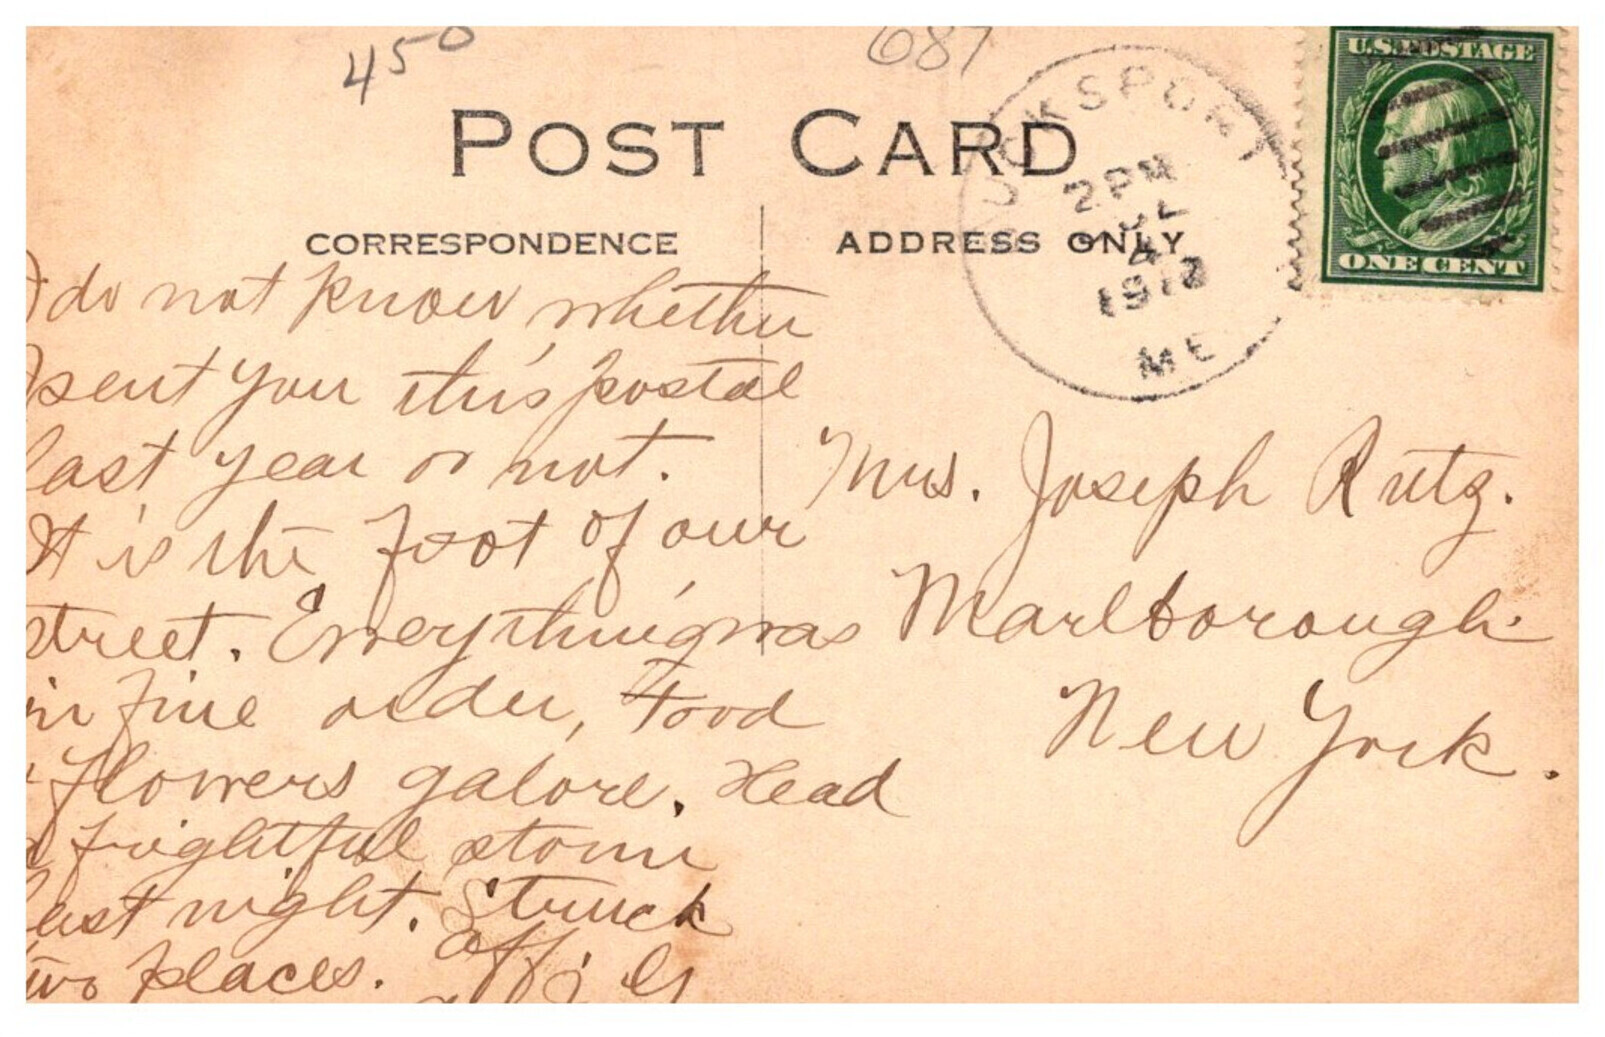 450
687
POST CARD
CORRESPONDENCE
ADDRESS ONLY
BUCKSPORT
2 PM
JUL
4
1912
ME
U.S. POSTAGE
ONE CENT
I do not know whether
I sent you this postal
last year or not.
It is the foot of our
street. Everything was
in fine order, Food
& flowers galore. Head
a frightful storm
last night. Struck
two places.
Mrs. Joseph Rutz.
Marlborough
New York.